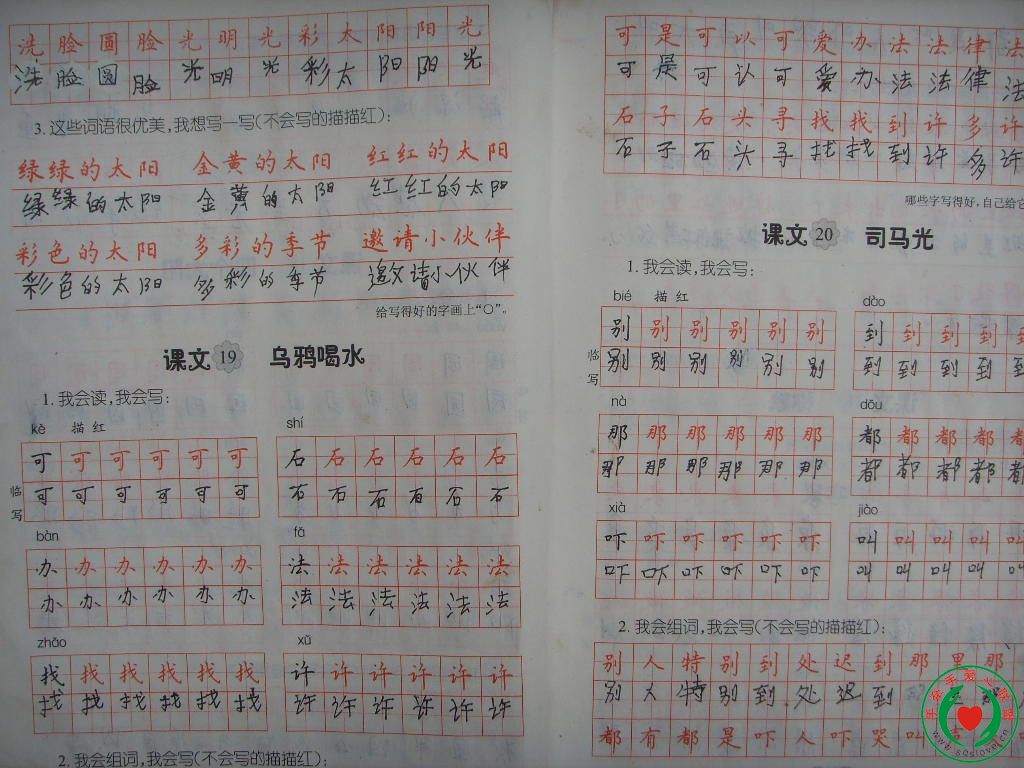 洗脸圆脸光明光彩太阳阳光
洗脸圆脸光明光彩太阳阳光
3. 这些词语很优美，我想写一写(不会写的描描红)：
绿绿的太阳 金黄的太阳 红红的太阳
绿绿的太阳 金黄的太阳 红红的太阳
彩色的太阳 多彩的季节 邀请小伙伴
彩色的太阳 多彩的季节 邀请小伙伴
给写得好的字画上“○”。
课文 19 乌鸦喝水
1. 我会读，我会写：
kě 描红 shí
可可可可可可 石石石石石石
临写 可可可可可可 石石石石石石
bàn fǎ
办办办办办办 法法法法法法
办办办办办办 法法法法法法
zhǎo xǔ
找找找找找找 许许许许许许
找找找找找找 许许许许许许
2. 我会组词，我会写(不会写的描描红)：
可是可以可爱办法法律法
可是可以可爱办法法律法
石子石头寻找找到许多许
石子石头寻找找到许多许
哪些字写得好，自己给它
课文 20 司马光
1. 我会读，我会写：
bié 描红 dào
别别别别别别 到到到到到
临写 别别别别别别 到到到到到
nà dōu
那那那那那那 都都都都都
那那那那那那 都都都都都
xià jiào
吓吓吓吓吓吓 叫叫叫叫叫
吓吓吓吓吓吓 叫叫叫叫叫
2. 我会组词，我会写(不会写的描描红)：
别人特别到处迟到那里那
别人特别到处迟到
都有都是吓人吓哭叫
手牵手爱心联盟
www.sqslove.cn